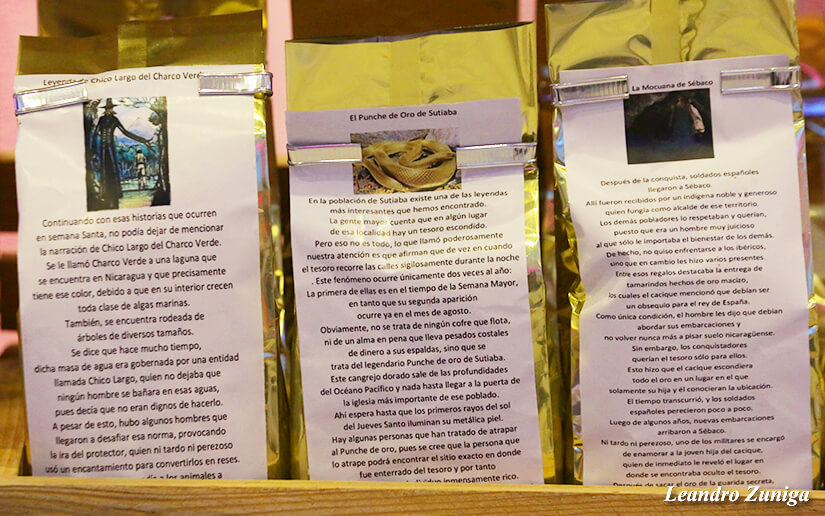 Leyenda de Chico Largo del Charco Verde
Continuando con esas historias que ocurren
en semana Santa, no podía dejar de mencionar
la narración de Chico Largo del Charco Verde.
Se le llamó Charco Verde a una laguna que
se encuentra en Nicaragua y que precisamente
tiene ese color, debido a que en su interior crecen
toda clase de algas marinas.
También, se encuentra rodeada de
árboles de diversos tamaños.
Se dice que hace mucho tiempo,
dicha masa de agua era gobernada por una entidad
llamada Chico Largo, quien no dejaba que
ningún hombre se bañara en esas aguas,
pues decía que no eran dignos de hacerlo.
A pesar de esto, hubo algunos hombres que
llegaron a desafiar esa norma, provocando
la ira del protector, quien ni tardo ni perezoso
usó un encantamiento para convertirlos en reses.
a los animales a
El Punche de Oro de Sutiaba
En la población de Sutiaba existe una de las leyendas
más interesantes que hemos encontrado.
La gente mayor cuenta que en algún lugar
de esa localidad hay un tesoro escondido.
Pero eso no es todo, lo que llamó poderosamente
nuestra atención es que afirman que de vez en cuando
el tesoro recorre las calles sigilosamente durante la noche
. Este fenómeno ocurre únicamente dos veces al año:
La primera de ellas es en el tiempo de la Semana Mayor,
en tanto que su segunda aparición
ocurre ya en el mes de agosto.
Obviamente, no se trata de ningún cofre que flota,
ni de un alma en pena que lleva pesados costales
de dinero a sus espaldas, sino que se
trata del legendario Punche de oro de Sutiaba.
Este cangrejo dorado sale de las profundidades
del Océano Pacífico y nada hasta llegar a la puerta de
la iglesia más importante de ese poblado.
Ahí espera hasta que los primeros rayos del sol
del Jueves Santo iluminan su metálica piel.
Hay algunas personas que han tratado de atrapar
al Punche de oro, pues se cree que la persona que
lo atrape podrá encontrar el sitio exacto en donde
fue enterrado del tesoro y por tanto
inmensamente rico.
La Mocuana de Sébaco
Después de la conquista, soldados españoles
llegaron a Sébaco.
Allí fueron recibidos por un indígena noble y generoso
quien fungía como alcalde de ese territorio.
Los demás pobladores lo respetaban y querían,
puesto que era un hombre muy juicioso
al que sólo le importaba el bienestar de los demás.
De hecho, no quiso enfrentarse a los ibéricos,
sino que en cambio les hizo varios presentes.
Entre esos regalos destacaba la entrega de
tamarindos hechos de oro macizo,
los cuales el cacique mencionó que debían ser
un obsequio para el rey de España.
Como única condición, el hombre les dijo que debían
abordar sus embarcaciones y
no volver nunca más a pisar suelo nicaragüense.
Sin embargo, los conquistadores
querían el tesoro sólo para ellos.
Esto hizo que el cacique escondiera
todo el oro en un lugar en el que
solamente su hija y él conocieran la ubicación.
El tiempo transcurrió, y los soldados
españoles perecieron poco a poco.
Luego de algunos años, nuevas embarcaciones
arribaron a Sébaco.
Ni tardo ni perezoso, uno de los militares se encargó
de enamorar a la joven hija del cacique,
quien de inmediato le reveló el lugar en
donde se encontraba oculto el tesoro.
Después de sacar el oro de la guarida secreta,
Leandro Zuniga